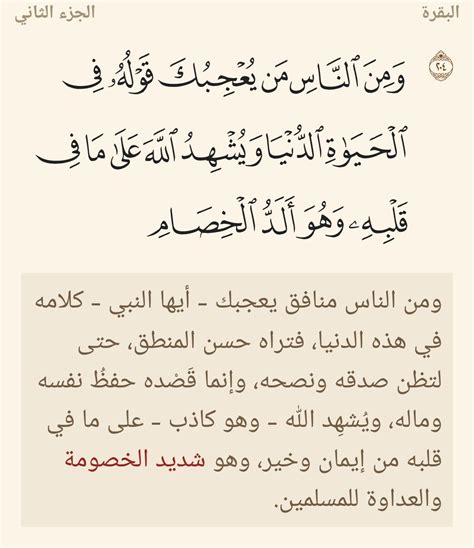 البقرة
الجزء الثاني
٢٠٤
وَمِنَ ٱلنَّاسِ مَن يُعْجِبُكَ قَوْلُهُۥ فِى
ٱلْحَيَوٰةِ ٱلدُّنْيَا وَيُشْهِدُ ٱللَّهَ عَلَىٰ مَا فِى
قَلْبِهِۦ وَهُوَ أَلَدُّ ٱلْخِصَامِ
ومن الناس منافق يعجبك - أيها النبي - كلامه
في هذه الدنيا، فتراه حسن المنطق، حتى
لتظن صدقه ونصحه، وإنما قَصْده حفظُ نفسه
وماله، ويُشهِد الله - وهو كاذب - على ما في
قلبه من إيمان وخير، وهو شديد الخصومة
والعداوة للمسلمين.